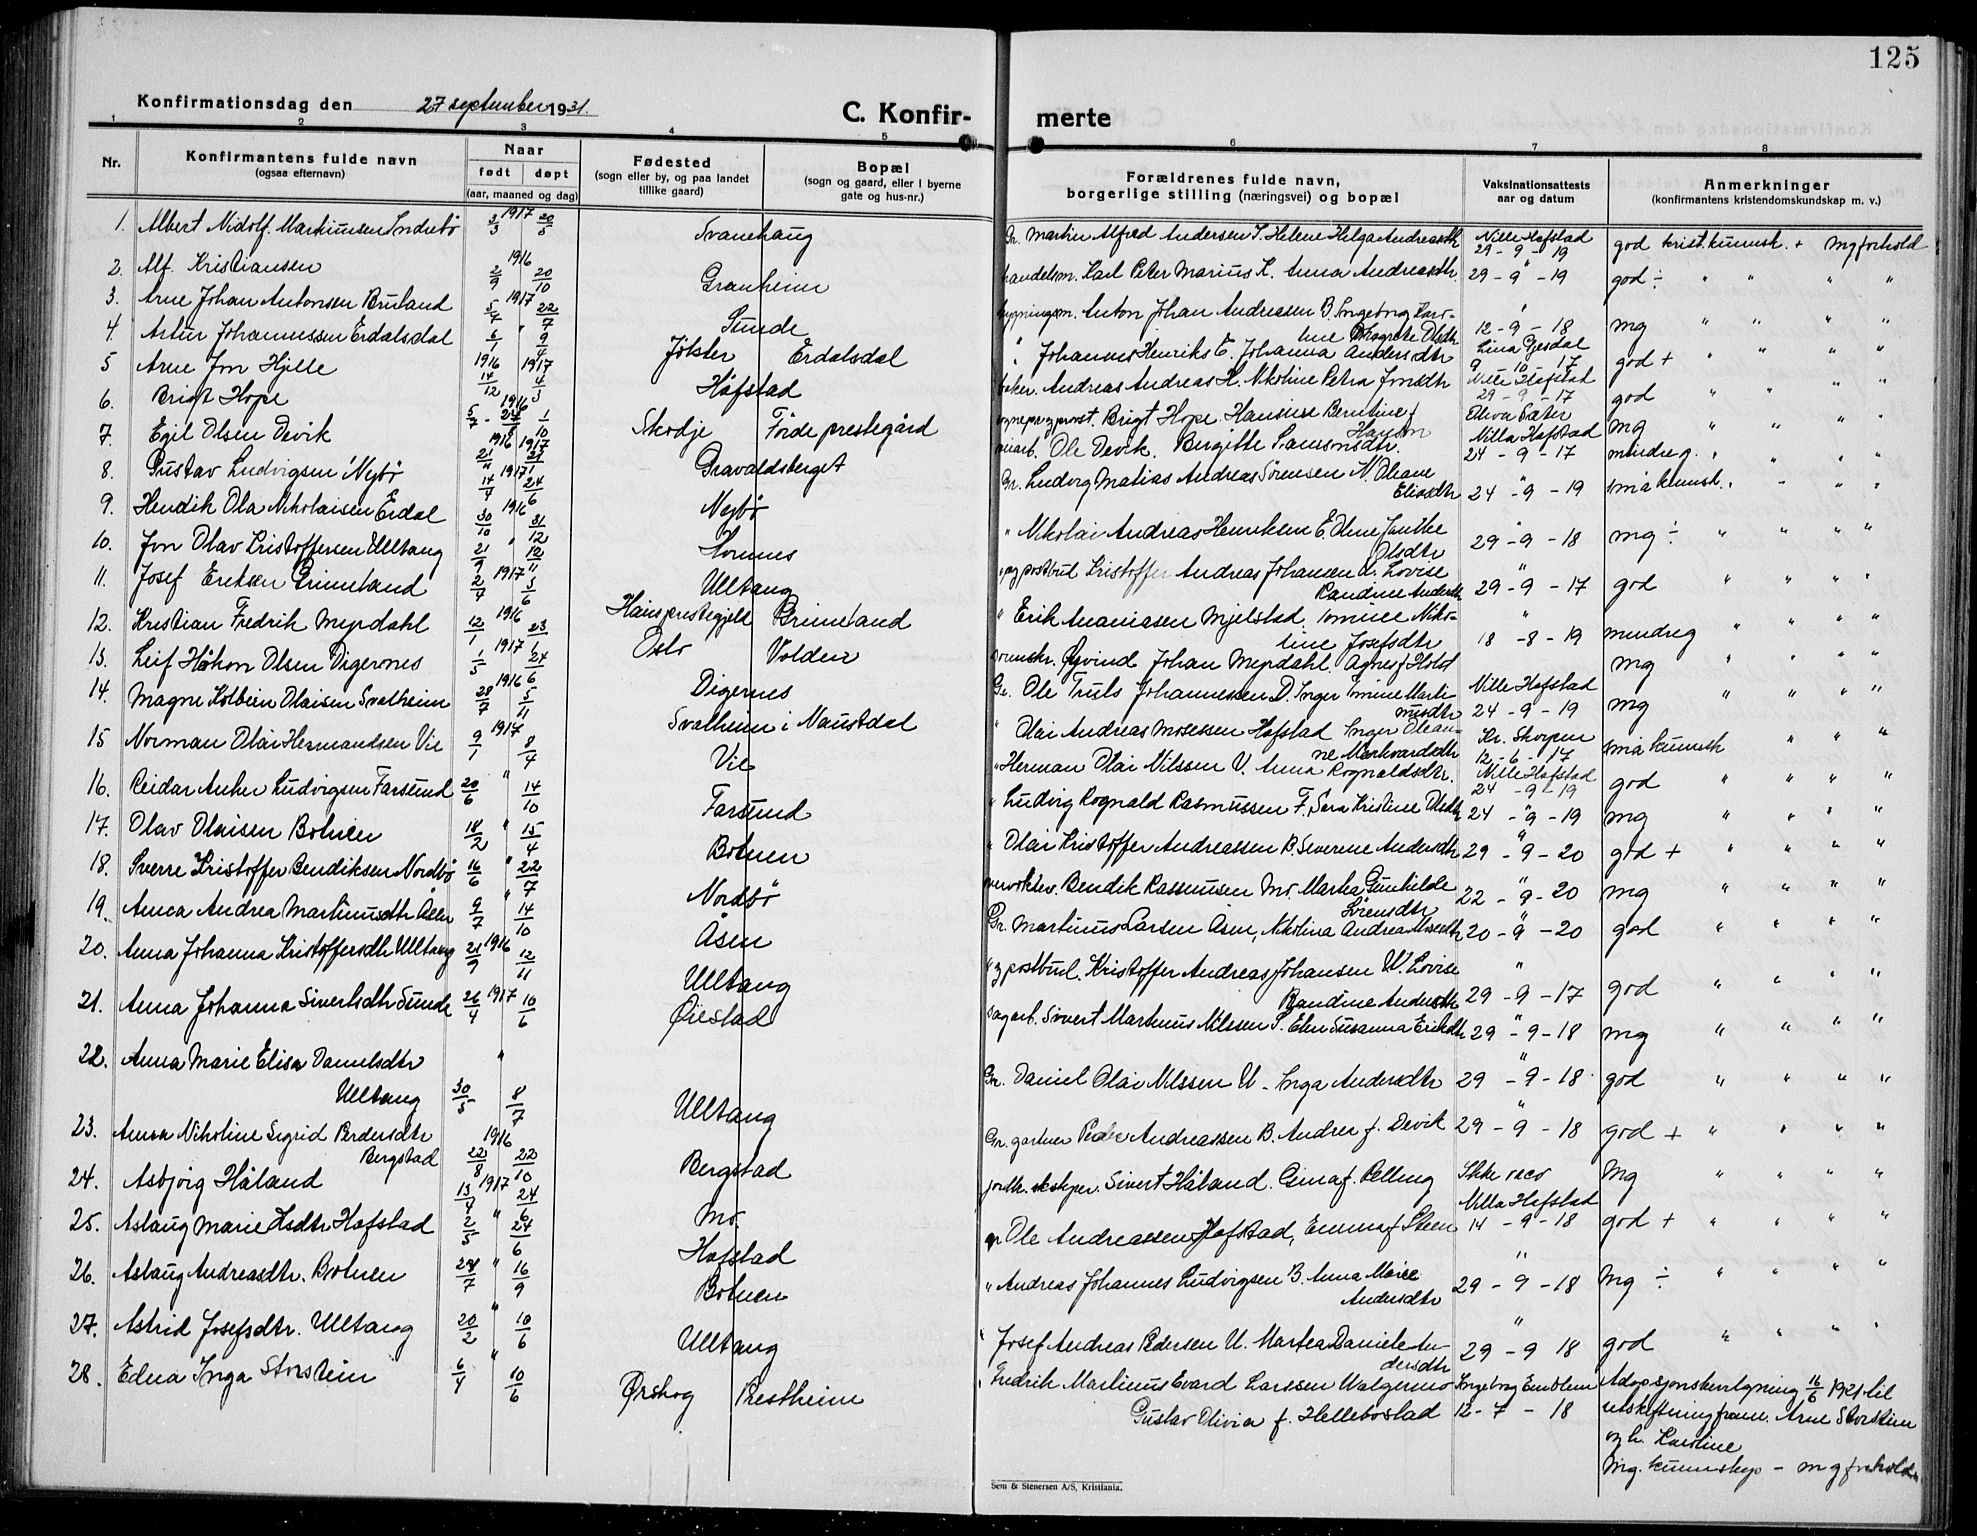 125
Konfirmationsdag den 27 september 1931.
C. Konfir- merte
1 2 3 4 5 6 7 8
Nr.
Konfirmantens fulde navn
(ogsaa efternavn)
Naar
født døpt
(aar, maaned og dag)
Fødested
(sogn eller by, og paa landet
tillike gaard)
Bopæl
(sogn og gaard, eller i byerne
gate og hus-nr.)
Forældrenes fulde navn,
borgerlige stilling (næringsvei) og bopæl
Vaksinationsattests
aar og datum
Anmerkninger
(konfirmantens kristendomskundskap m. v.)
1. Albert Nidolf Martinusen Indrebø 3/3 1917 20/5 Svanehaug Gr. Martin Alfred Andersen I. Helene Helga Andreasdtr Nille Hafstad 29-9-19 god krist.kunnsk. + mg forhold
2. Alf Kristiansen 1916 2/9 20/10 Granheim handelsm. Karl Peter Marius K. Anna Andreasdtr 29-9-19 god ÷ " " " "
3. Arne Johan Antonsen Bruland 5/4 1917 22/7 Sunde bygningsm. Anton Johan Andreasen B. Ingeborg Karo-
line Margrete Olsdtr 12-9-18 mg " " " "
4. Artur Johannessen Erdalsdal 6/1 " 9/4 Jølster Erdalsdal " Johannes Henriks E. Johanna Andersdtr Lina Gjesdal 9 10 17 god + " " " "
5 Arne Jon Hjelle 1916 14/12 1917 4/3 Hafstad baker. Andreas Andreas H. Nikoline Petra Jonsdtr Nille Hafstad 29-9-17 god " " " "
6. Brigt Hope 5/7 1916 1/10 Skodje Förde prestegård sognepr og prost. Brigt Hope. Hansine Berntine f.
Hansen Oliva Sæter mg " " " "
7. Egil Olsen Devik 1916 21/11 1917 Gravaldsberget Ole Devik. Bergitte Samsonsdtr. Nilla Hafstad 24-9-17 mindre g. " " " "
8. Gustav Ludvigsen Nybø 14/4 1917 24/6 Nybø Gr. Ludvig Matias Andreas Sørensen N. Oleane
Eliasdtr 24-9-19 små kunnsk. " " "
9. Hendik Ola Nikolaisen Erdal 1916 30/10 31/12 Hornnes " Nikolai Andreas Henriksen E. Oline Jantke
Olsdtr 29-9-18 mg ÷ " " " "
10. Jon Olav Kristoffersen Ulltang 21/9 " 12/11 Ulltang " og postbud Kristoffer Andreas Johansen U. Lovise
Randine Andersdtr 29-9-17 god " " " "
11. Josef Eriksen Grimeland 2/4 1917 3/6 Hausprestegjeld Grimeland " Erik Ananiasen Mjelstad. Tomine Niko-
line Josefsdtr 18-8-19 mindre g " " " "
12. Kristian Fredrik Myrdahl 12/1 1916 23/6 Oslo Volden sorenskr. Øyvind Johan Myrdahl. Agnes f Holst mg " " " "
13. Leif Håkon Olsen Digernes 1/5 1917 24/6 Digernes Gr. Ole Truls Johannessen D. Inger Tomine Marti-
nusdtr Nille Hafstad 24-9-19 mg " " " "
14. Magne Kolbein Olaisen Svalheim 28/7 1916 5/11 Svalheim i Naustdal " Olai Andreas Mosessen Hafstad Inger Olean-
ne Markvardsdtr Kr. Skorpen 12-6-17 små kunnsk " " "
15 Norman Olai Hermandsen Vie 9/1 1917 8/4 Vie " Herman Olai Nilssen V. Anna Rognaldsdtr. Nille Hafstad 24-9-19 god " " " "
16. Reidar Anker Ludvigsen Farsund 20/6 " 14/10 Farsund " Ludvig Rognald Rasmussen F, Sara Kristine Olsdtr 24-9-19 mg " " " "
17. Olav Olaisen Botnen 18/2 " 15/4 Botnen " Olai Kristoffer Andreassen B. Severine Andersdtr 29-9-20 god + " " " "
18. Sverre Kristoffer Bendiksen Nordbø 16/6 " 22/7 Nordbø Bendik Rasmusen Mo. Marta Gunhilde
Sørensdtr 22-9-20 mg " " " "
19. Anna Andrea Martinusdtr Åsen 9/7 " 14/10 Åsen Gr. Martinus Larsen Åsen, Nikolina Andrea Mosesdtr 20-9-20 god " " " "
20. Anna Johanna Kristoffersdtr Ulltang 21/9 1916 12/11 Ulltang " og postbud. Kristoffer Andreas Johansen U. Lovise
Randine Andersdtr 29-9-17 god " " " "
21. Anna Johanna Sivertsdtr Sunde 26/4 1917 10/6 Øiestad sagarb. Sivert Martinus Nilssen S. Elen Susanna Eriksdtr 29-9-18 mg " " " "
22. Anna Marie Elisa Danielsdtr
Ulltang 30/5 " 8/7 Ulltang Gr. Daniel Olai Nilssen U. Inga Andersdtr 29-9-18 god " " " "
23. Anna Nikoline Sigrid Pedersdtr
Bergstad 1916 22/8 22/10 Bergstad Gr. gartner Peder Andreassen B. Andrea f. Devik 29-9-18 god + " " " "
24. Asbjørg Håland 13/4 1917 24/6 Mo. Sivert Håland. Gina f. Relling Ikke vacc Mg " " " "
25. Aslaug Marie Hsdtr Hafstad 2/5 " 24/6 Hafstad gr Ole Andreassen Hafstad, Emma f Steen Nilla Hafstad 14-9-18 god + " " " "
26. Aslaug Andreasdtr. Botnen 28/7 " 16/9 Botnen " Andreas Johannes Ludvigsen B. Anna Marie
Andersdtr 29-9-18 Mg ÷ " " " "
27. Astrid Josefsdtr. Ulltang 20/2 " 10/6 Ulltang " Josef Andreas Pedersen U. Martea Daniele An-
dersdtr 29-9 18 god " " " "
28. Edna Inga Storstein 6/4 " 10/6 Ørskog Prestheim " Fredrik Martinus Evard Larssen Walgermo
Gustav Olivia f. Hellebostad Ingeborg Emblem 12-7-18 Adopsjonsbevilgning 16/6 1921 til
utskiftningsform. Arne Storstein
og h. Karoline
Mg. kunnskap - mg forhold
Sem & Stenersen A/S, Kristiania.